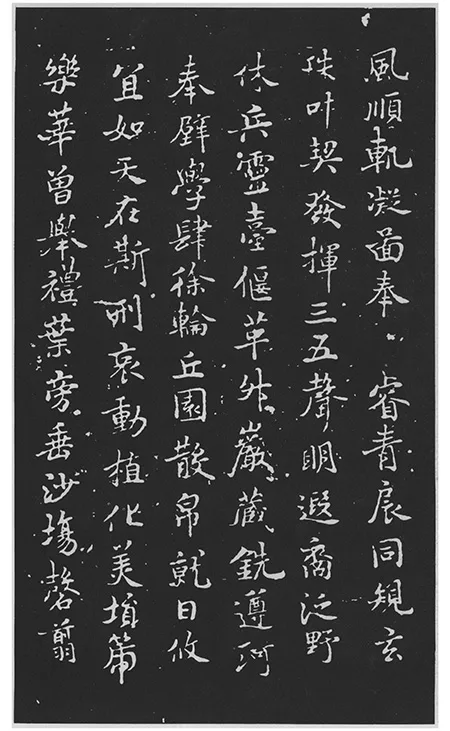 風順軌凝面奉睿青扆同規玄
珠叶契發揮三五聲明遐裔泛野
休兵靈臺偃革外巖藏銑遵河
奉璧學肆徐輪丘園散帛就日攸
宜如天在斯刑動植化美
樂華曾舉禮葉旁垂沙場罄翦